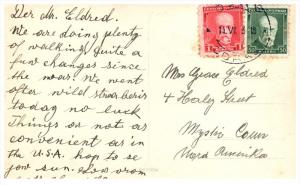 Der Mr. Eldred.
We are doing plenty
of walking, quite a
few changes since
the war. We went
after wild strawberis
today no luck
Things or not as
convenient as in
the U.S.A. hop to se
you sun. Low from
Mrs Grace Eldred
4 Hanley Street
Mystic Conn
Nord Amerika